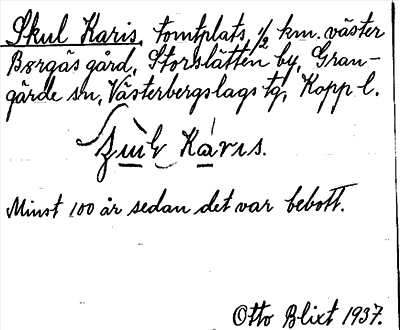 Skul Karis, tomtplats, ½ km. väster
Børgås gård, Storslätten by, Gran-
gärde sn, Västerbergslags tg, Kopp l.
Kàrıs.
Minst 100 år sedan det var bebott.
Otto Blixt 1937.